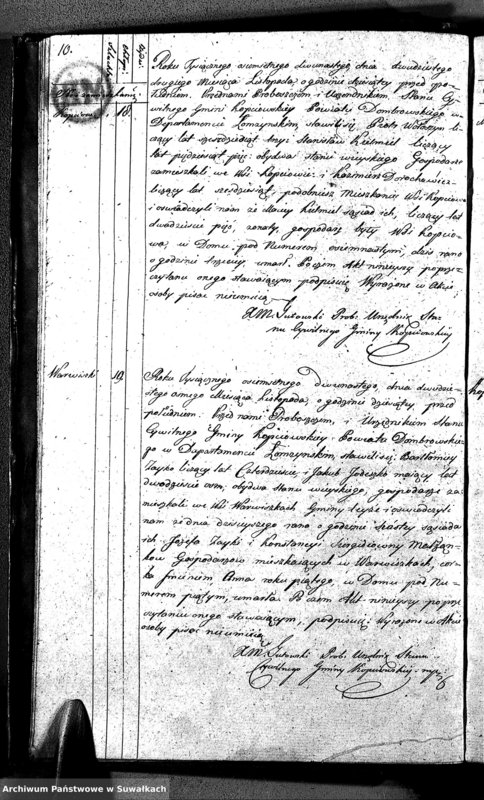 10.
Kopciowo 18.
Roku Tysiącznego osiemsetnego dwunastego, dnia dwudziestego
drugiego Miesiąca Listopada o godzinie dziesiątey przed po-
łudniem. Przed nami Proboszczem i Urzędnikiem Stanu Cy-
wilnego Gminy Kopciowskiey Powiatu Dombrowskiego w
Departamencie Łomżyńskim, stawili się Piotr li-
czący lat sześćdziesiąt trzy i Stanisław Kielmiel liczący
lat pięćdziesiąt pięć, obydwa stanu wieyskiego Gospodarze
zamieszkali we Wsi Kopciowie, i Kazimierz Dorochowicz
liczący lat sześćdziesiąt, podobnież Mieszkaniec Wsi Kopciowa
i oświadczyli nam że Maciey Kielmiel sąsiad ich, liczący lat
dwadzieścia pięć, żonaty, gospodarz były Wsi Kopcio-
wa, w Domu pod Numerem osiemnastym, dziś rano
o godzinie trzeciey, umarł. Poczem Akt ninieyszy po prze-
czytaniu onego stawaiącym podpisuię Wyrażone w Akcie
osoby pisać nieumieią
X. M. Gutowski Prob. Urzędnik Sta-
nu Cywilnego Gminy Kopciowskiey
Warwiszki 19.
Roku Tysiącznego osiemsetnego dwunastego, dnia dwudzie-
stego osmego Miesiąca Listopada, o godzinie dziesiątey przed
południem. Przed nami Proboszczem, i Urzędnikiem Stanu
Cywilnego Gminy Kopciowskiey, Powiatu Dombrowskie-
go w Departamencie Łomżyńskim, stawili się; Bartłomiey
Zayko liczący lat Czterdzieści, i Jakub maiący lat
dwadzieścia osm, obydwa stanu wieyskiego, gospodarze za-
mieszkali we Wsi Warwiszkach, Gminy teyże i oświadczyli
nam że dnia dzisieyszego rano o godzinie szóstey sąsiada
ich Józefa Zayki i Konstancyi Małżon-
ków Gospodarzów mieszkaiących w Warwiszkach, cór-
ka Imieniem Anna roku piątego, w Domu pod Nu-
merem piątym, umarła. Poczem Akt ninieyszy po prze-
czytaniu onego stawaiącym, podpisuię: Wyrażone w Akcie
osoby pisać nieumieią
X. M. Gutowski Prob. Urzędnik Stanu
Cywilnego Gminy Kopciowskiey
Archiwum Państwowe w Suwałkach